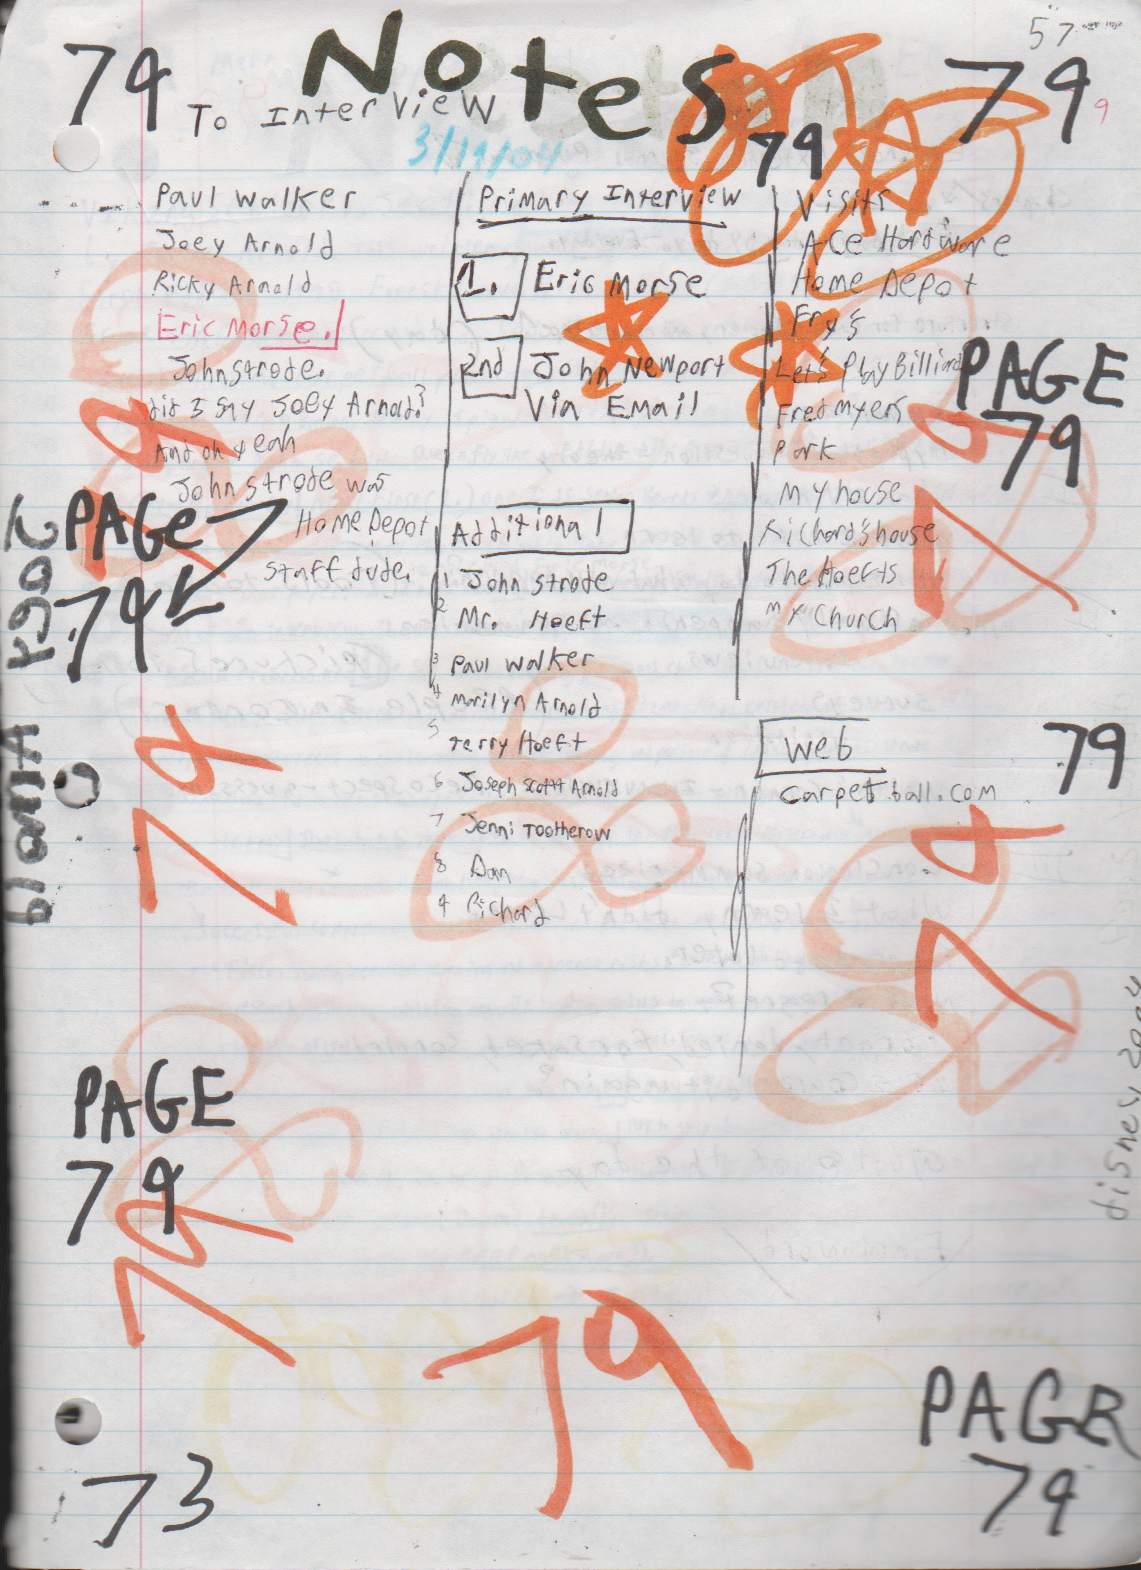 Notes
57
79
79
9
To Interview
3/19/04
79
Paul Walker
Joey Arnold
Ricky Arnold
Eric Morse.
John Strode.
did I say Joey Arnold?
And oh yeah
John Strode was
Home Depot
staff dude.
PAGE
79
Joey
Arnold
Primary Interview
1. Eric Morse
2nd John Newport
Via Email
Additional
1 John Strode
2 Mr. Hoeft
3 Paul Walker
4 Marilyn Arnold
5 Terry Hoeft
6 Joseph Scott Arnold
7 Jenni Tootherow
8 Dan
9 Richard
Visits
ACE Hardware
Home Depot
Fry's
Let's Play Billiard
Fred Myers
Park
My house
Richard's house
The Hoefts
My Church
PAGE
79
79
79
Web
carpetball.com
79
79
79
disney 2004
PAGE
79
79
79
73
PAGE
79